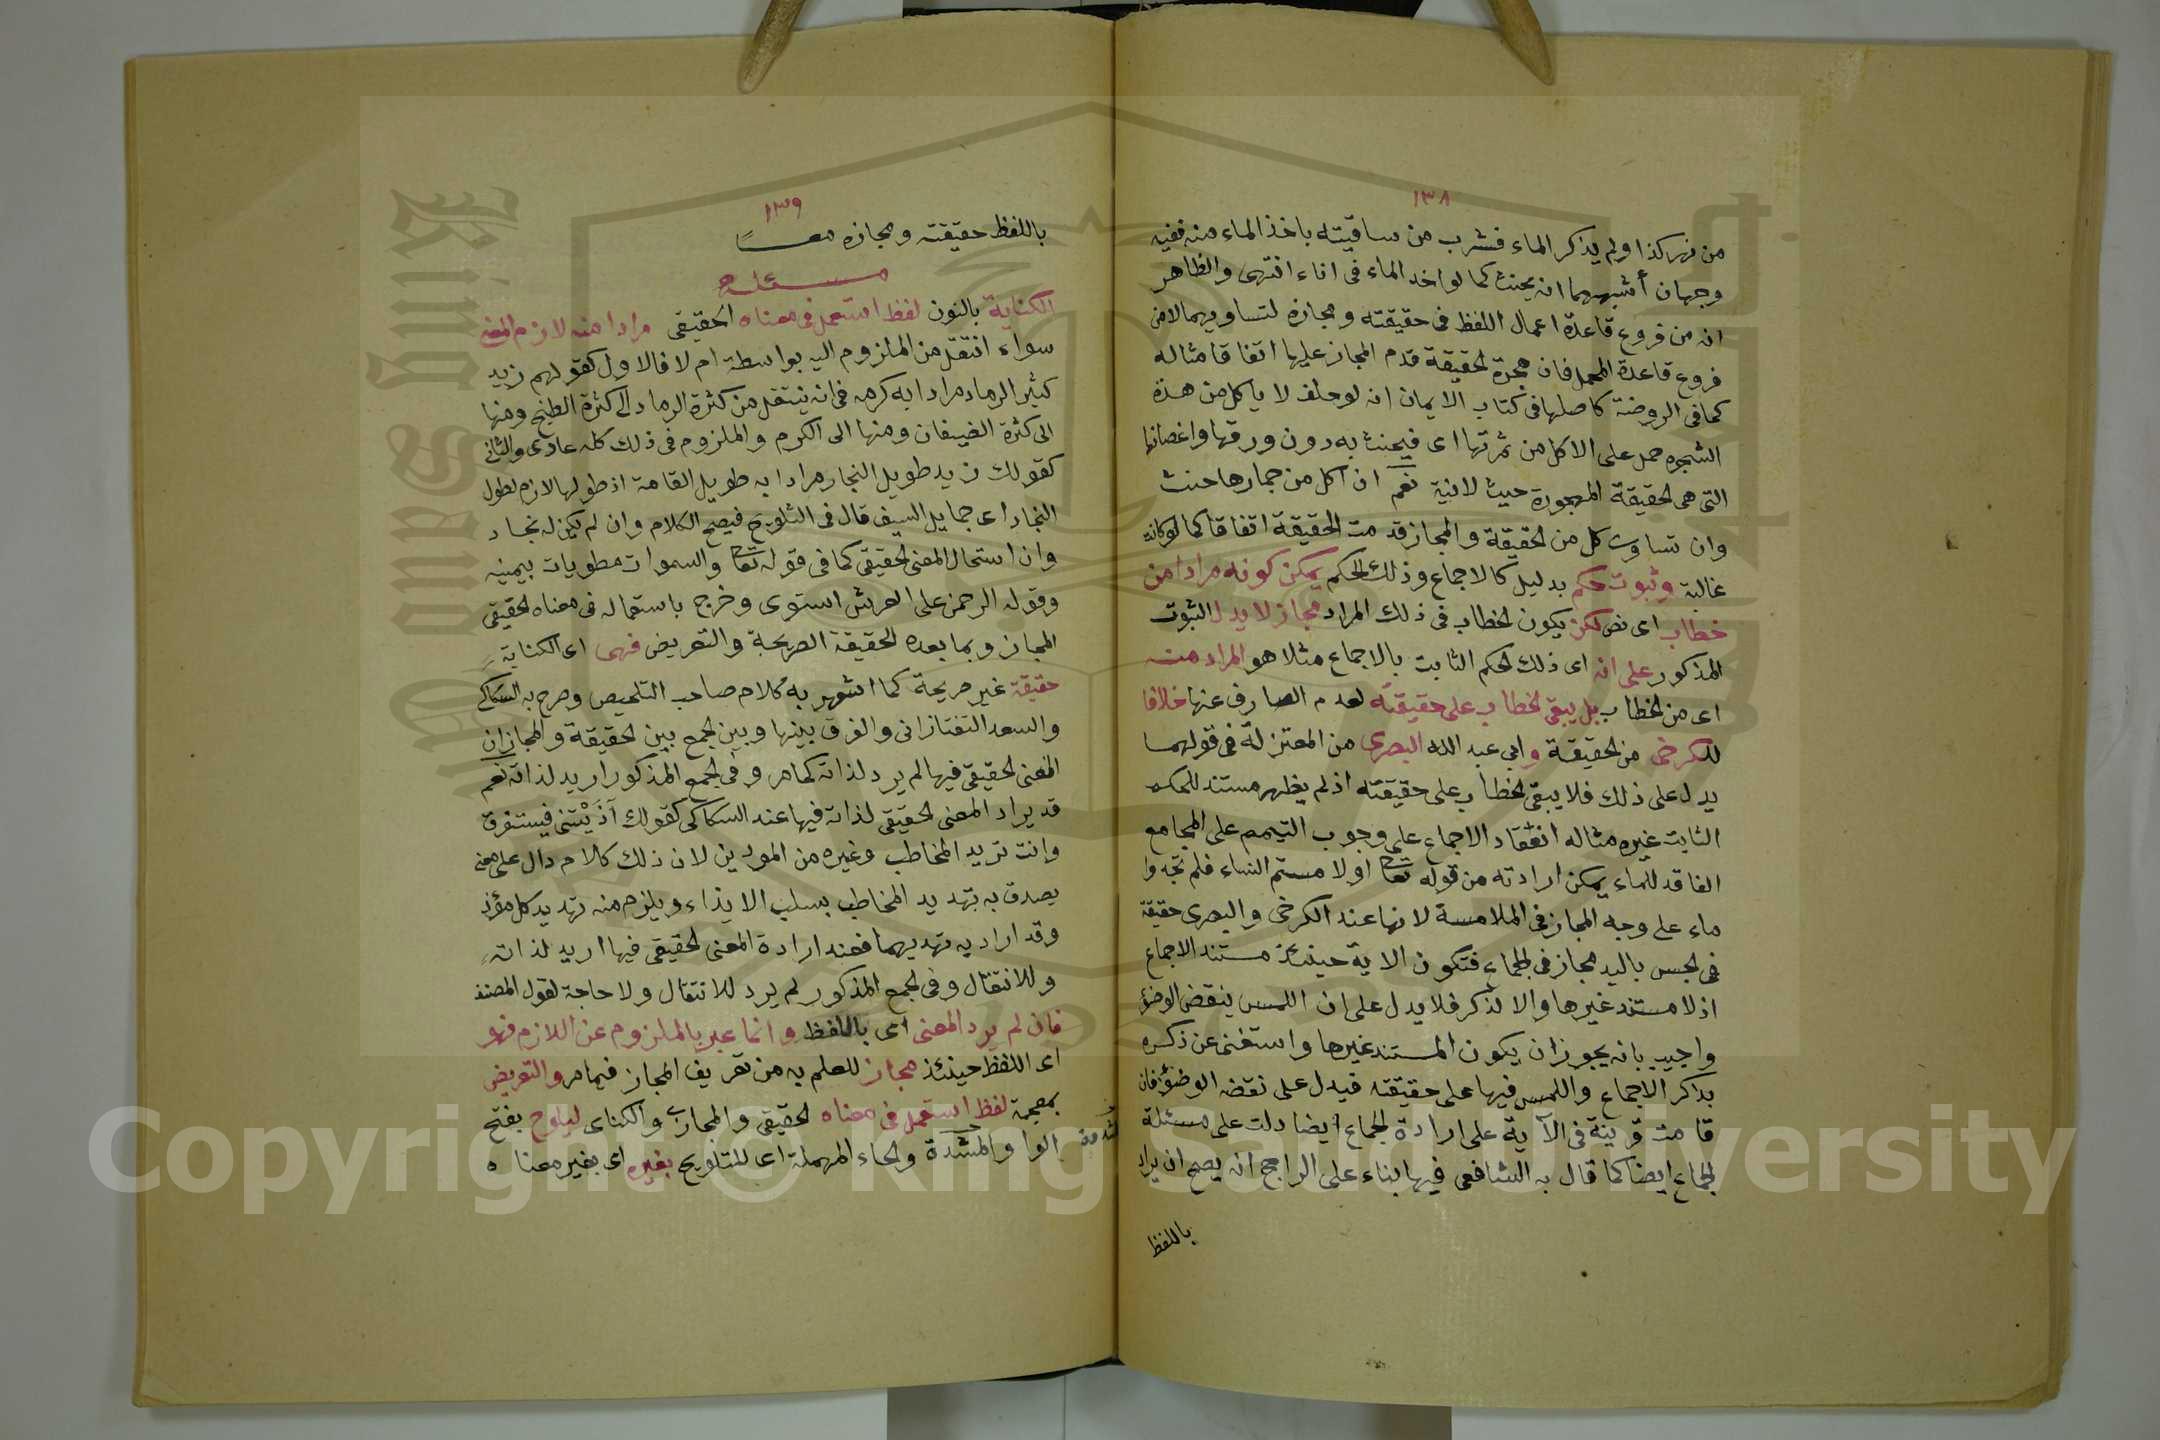 ١٣٨
من نهر كذا ولم يذكر الماء فشرب من ساقيته باخذ الماء منه ففيه
وجهان أشبههما انه يحنث كما لو اخذ الماء فى اناء انتهى والظاهر
انه من فروع قاعدة اعمال اللفظ فى حقيقته ومجازه لتساويهما لا من
فروع قاعدة المجمل فان هجرة الحقيقة قدم المجاز عليها اتفاقا مثاله
كما فى الروضة كاصلها فى كتاب الايمان انه لو حلف لا ياكل من هذه
الشجره حمل على الاكل من ثمرتها اى فيحنث به دون ورقها واغصانها
التى هى الحقيقة المهجورة حيث لا نية نعم ان اكل من جمارها حنث
وان تساوت كل من الحقيقة والمجاز قدمت الحقيقة اتفاقا كما لو كانت
غالبة وثبوت حكم بدليل كالاجماع وذلك الحكم يمكن كونه مرادا من
خطاب اى نص لكن يكون الخطاب فى ذلك المراد مجاز لا يدل الثبوت
المذكور على انه اى ذلك الحكم الثابت بالاجماع مثلا هو المراد منه
اى من الخطاب بل يبقى الخطاب على حقيقته لعدم الصارف عنها خلافا
للكرخى من الحقيقة وابي عبد الله البصرى من المعتزلة فى قولهما
يدل على ذلك فلا يبقى الخطاب على حقيقته اذ لم يظهر مستند للحكم
الثابت غيره مثاله انعقاد الاجماع على وجوب التيمم على المجامع
الفاقد للماء يمكن ارادته من قوله تعا او لامستم النساء فلم تجدوا
ماء على وجه المجاز فى الملامسة لانها عند الكرخى والبصرى حقيقة
فى الجس باليد مجاز فى الجماع فتكون الاية حينئذ مستند الاجماع
اذ لا مستند غيرها والا لذكر فلا يدل على ان اللمس ينقض الوضؤ
واجيب بانه يجوز ان يكون المستند غيرها واستغنى عن ذكره
بذكر الاجماع واللمس فيها على حقيقته فيدل على نقضه الوضؤ فان
قامت قرينة فى الآية على ارادة الجماع ايضا دلت على مسئلة
الجماع ايضا كما قال به الشافعى فيها بناء على الراجح انه يصح ان يراد
باللفظ
١٣٩
باللفظ حقيقته ومجازه معاً
مسئلة
الكناية بالنون لفظ استعمل فى معناه الحقيقى مرادا منه لازم المعنى
سواء انتقل من الملزوم اليه بواسطة ام لا فالاول كقولهم زيد
كثير الرماد مرادا به كرمه فى انه ينتقل من كثرة الرماد الى كثرة الطبخ ومنها
الى كثرة الضيفان ومنها الى الكرم والملزوم فى ذلك كله عادى والثانى
كقولك زيد طويل النجاد مرادا به طويل القامة اذ طولها لازم لطول
النجاد اى حمايل السيف قال فى التلويح فيصح الكلام وان لم يكن له نجاد
وان استحال المعنى الحقيقى كما فى قوله تعا والسموات مطويات بيمينه
وقوله الرحمن على العرش استوى وخرج باستعماله فى معناه الحقيقى
المجاز وبما بعده الحقيقة الصريحة والتعريض فهى اى الكناية
حقيقة غير صريحة كما اشهر به كلام صاحب التلخيص وصرح به السكاكى
والسعد التفتازانى والفرق بينها وبين الجمع بين الحقيقة والمجاز ان
المعنى الحقيقى فيها لم يرد لذاته كما مر وفى الجمع المذكور اريد لذاته نعم
قد يراد المعنى الحقيقى لذاته فيها عند السكاكى كقولك آذيتنى فستعرف
وانت تريد المخاطب وغيره من الموذين لان ذلك كلام دال على معنى
يصدق به تهديد المخاطب بسلب الايذاء ويلزم منه تهديد كل مؤذ
وقد اراد به تهديهما فعند ارادة المعنى الحقيقى فيها اريد لذاته
وللانتقال وفى الجمع المذكور لم يرد للانتقال ولا حاجة لقول المصنف
فان لم يرد المعنى اى باللفظ وانما عبر بالملزوم عن اللازم فهو
اى اللفظ حينئذ مجاز للعلم به من تعريف المجاز فيما مر والتعريض
بمعجمة لفظ استعمل فى معناه الحقيقى والمجازى والكناى ليلوح بفتح
الواو المشددة والحاء المهملة اى للتلويح بغيره اى بغير معناه
Copyright © King Saud University
King Saud University